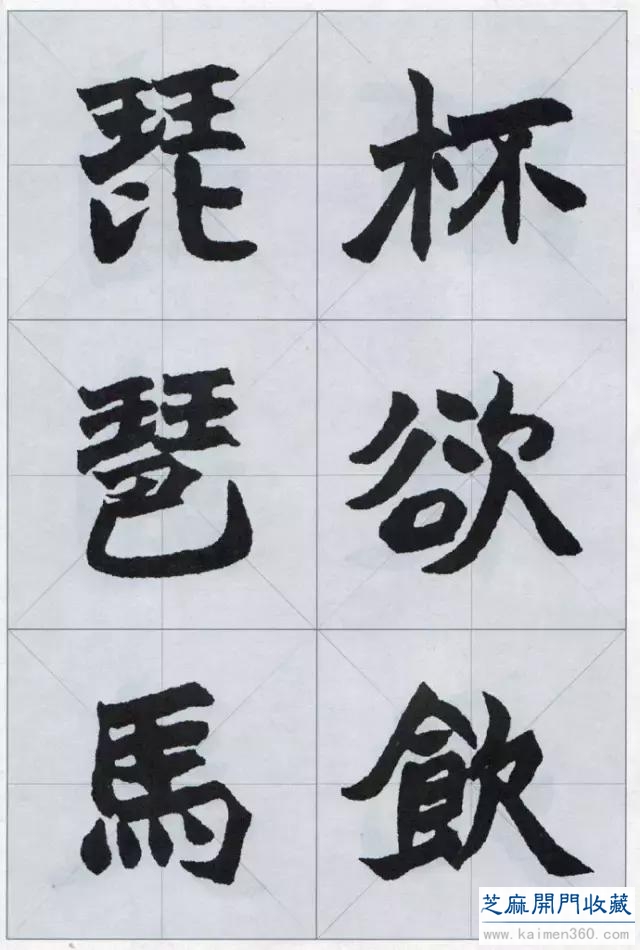 杯欲飲
琵琶馬
芝麻開門收藏
www.kaimen360.com